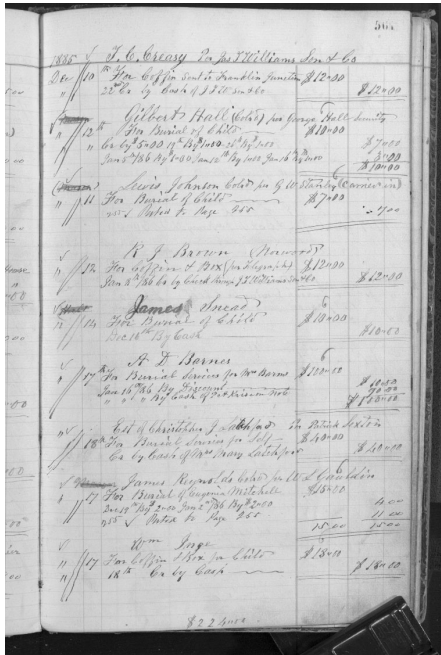 1885 T. C. Creasy Per Jas T Williams Son & Co
Dec 10th For Coffin Sent to Franklin Junction $12"00
22nd Cr. by Cash of J T W. Son & Co $12"00
Gilbert Hall (Cold) per George Hall Security
" 12th For Burial of Child $10"00
Cr By $5"00 19th By $1"00 $7"00
Jan 5th /86 By $1"00 Jan 12th By $1"00 Jan 16th By $1"00 3"00
$10"00
Lewis Johnson Cold per G W Stanley (Carver in)
" 11 For Burial of Child $7"00
Noted to Page 255 7"00
R J Brown Norwood
" 12 For Coffin & Box (per Telegraph) $12"00
Jan 8th /86 Cr by Check J T Williams Son & Co $12"00
James Snead
" 14 For Burial of Child $10"00
Dec 16th By Cash $10"00
A D Barnes
" 17th For Burial Services for Mrs Barnes $100"00
Jan 16th /86 By Discount $10"00
" " " By Cash of
$100"00
Est of Christopher J Latchford Patrick Sexton
" 18th For Burial Services for Self $40"00
Cr by Cash of Mrs Mary Latchford $40"00
James Reynolds Cold per W L Gauldin
" 17 For Burial of Eugenia Mitchell $15"00
Dec 19th By $2"00 Jan 2nd /86 By $2"00 4.00
Noted to Page 255 11 00
15.00 15 00
Wm Inge
" 17 For Coffin & Box for Child $18"00
" 18th Cr by Cash $18"00
$224"00